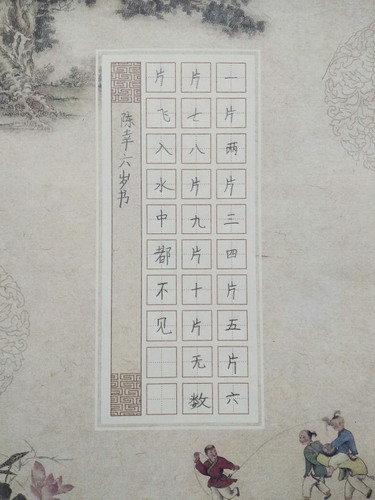 一片两片三四片五片六
片七八片九片十片无数
片飞入水中都不见
陈幸六岁书